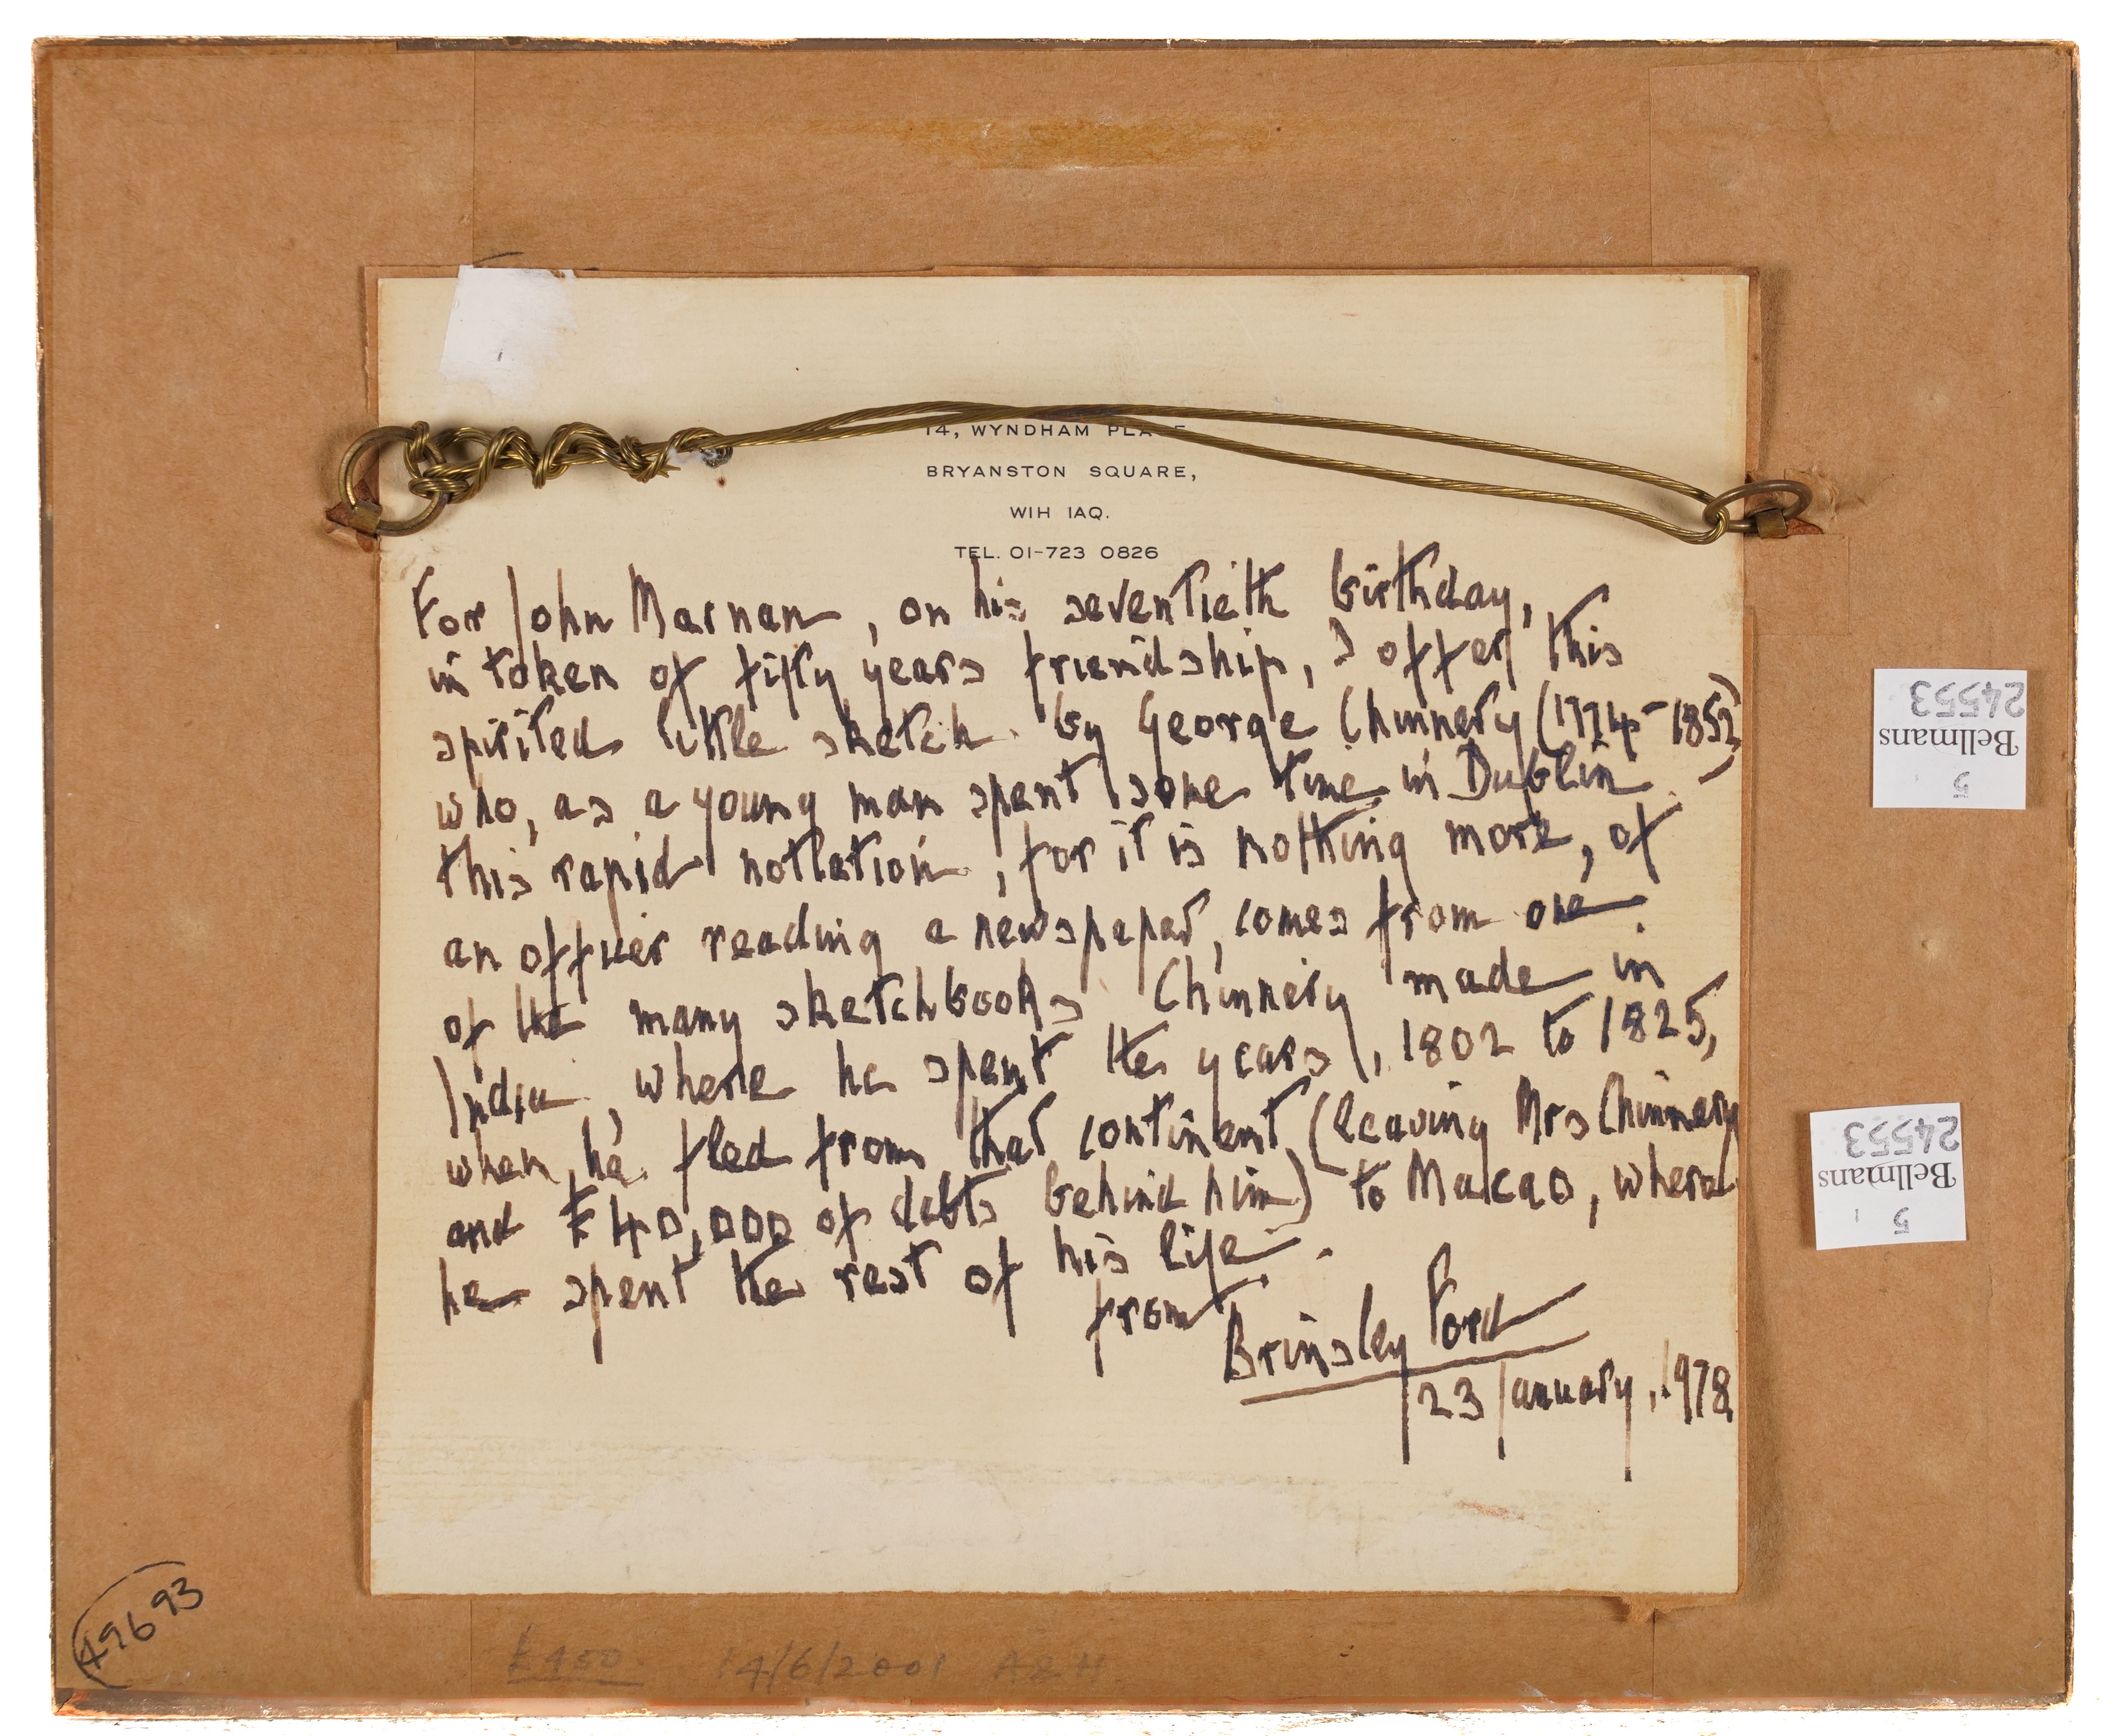 14, WYNDHAM PLACE
BRYANSTON SQUARE,
W1H 1AQ.
TEL. 01-723 0826
For John Marnan, on his seventieth birthday,
in token of fifty years friendship, I offer this
spirited little sketch by George Chinnery (1774-1852)
who, as a young man spent some time in Dublin.
this rapid notation, for it is nothing more, of
an officer reading a newspaper, comes from one
of the many sketchbooks Chinnery made in
India, where he spent the years, 1802 to 1825,
when he fled from that continent (leaving Mrs Chinnery
and £40,000 of debts behind him) to Macao, where
he spent the rest of his life.
from
Brinsley Ford
23 January, 1978
5
Bellmans
24553
5 1
Bellmans
24553
49693
14/6/2001 A&H.